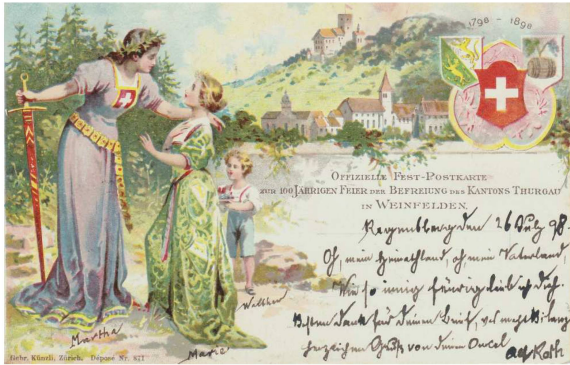 1798 - 1898
OFFIZIELLE FEST-POSTKARTE
ZUR 100 JÄHRIGEN FEIER DER BEFREIUNG DES KANTONS THURGAU
IN WEINFELDEN.
Regensberg den 26 July 98.
Oh, mein Heimathland, oh, mein Vaterland,
Wie so innig feurig lieb ich dich.
Besten Dank für deinen Brief,
herzlichen Gruß von deinem Onkel
Roth
Walther
Martha
Marie
Gebr. Künzli, Zürich. Déposé Nr. 877